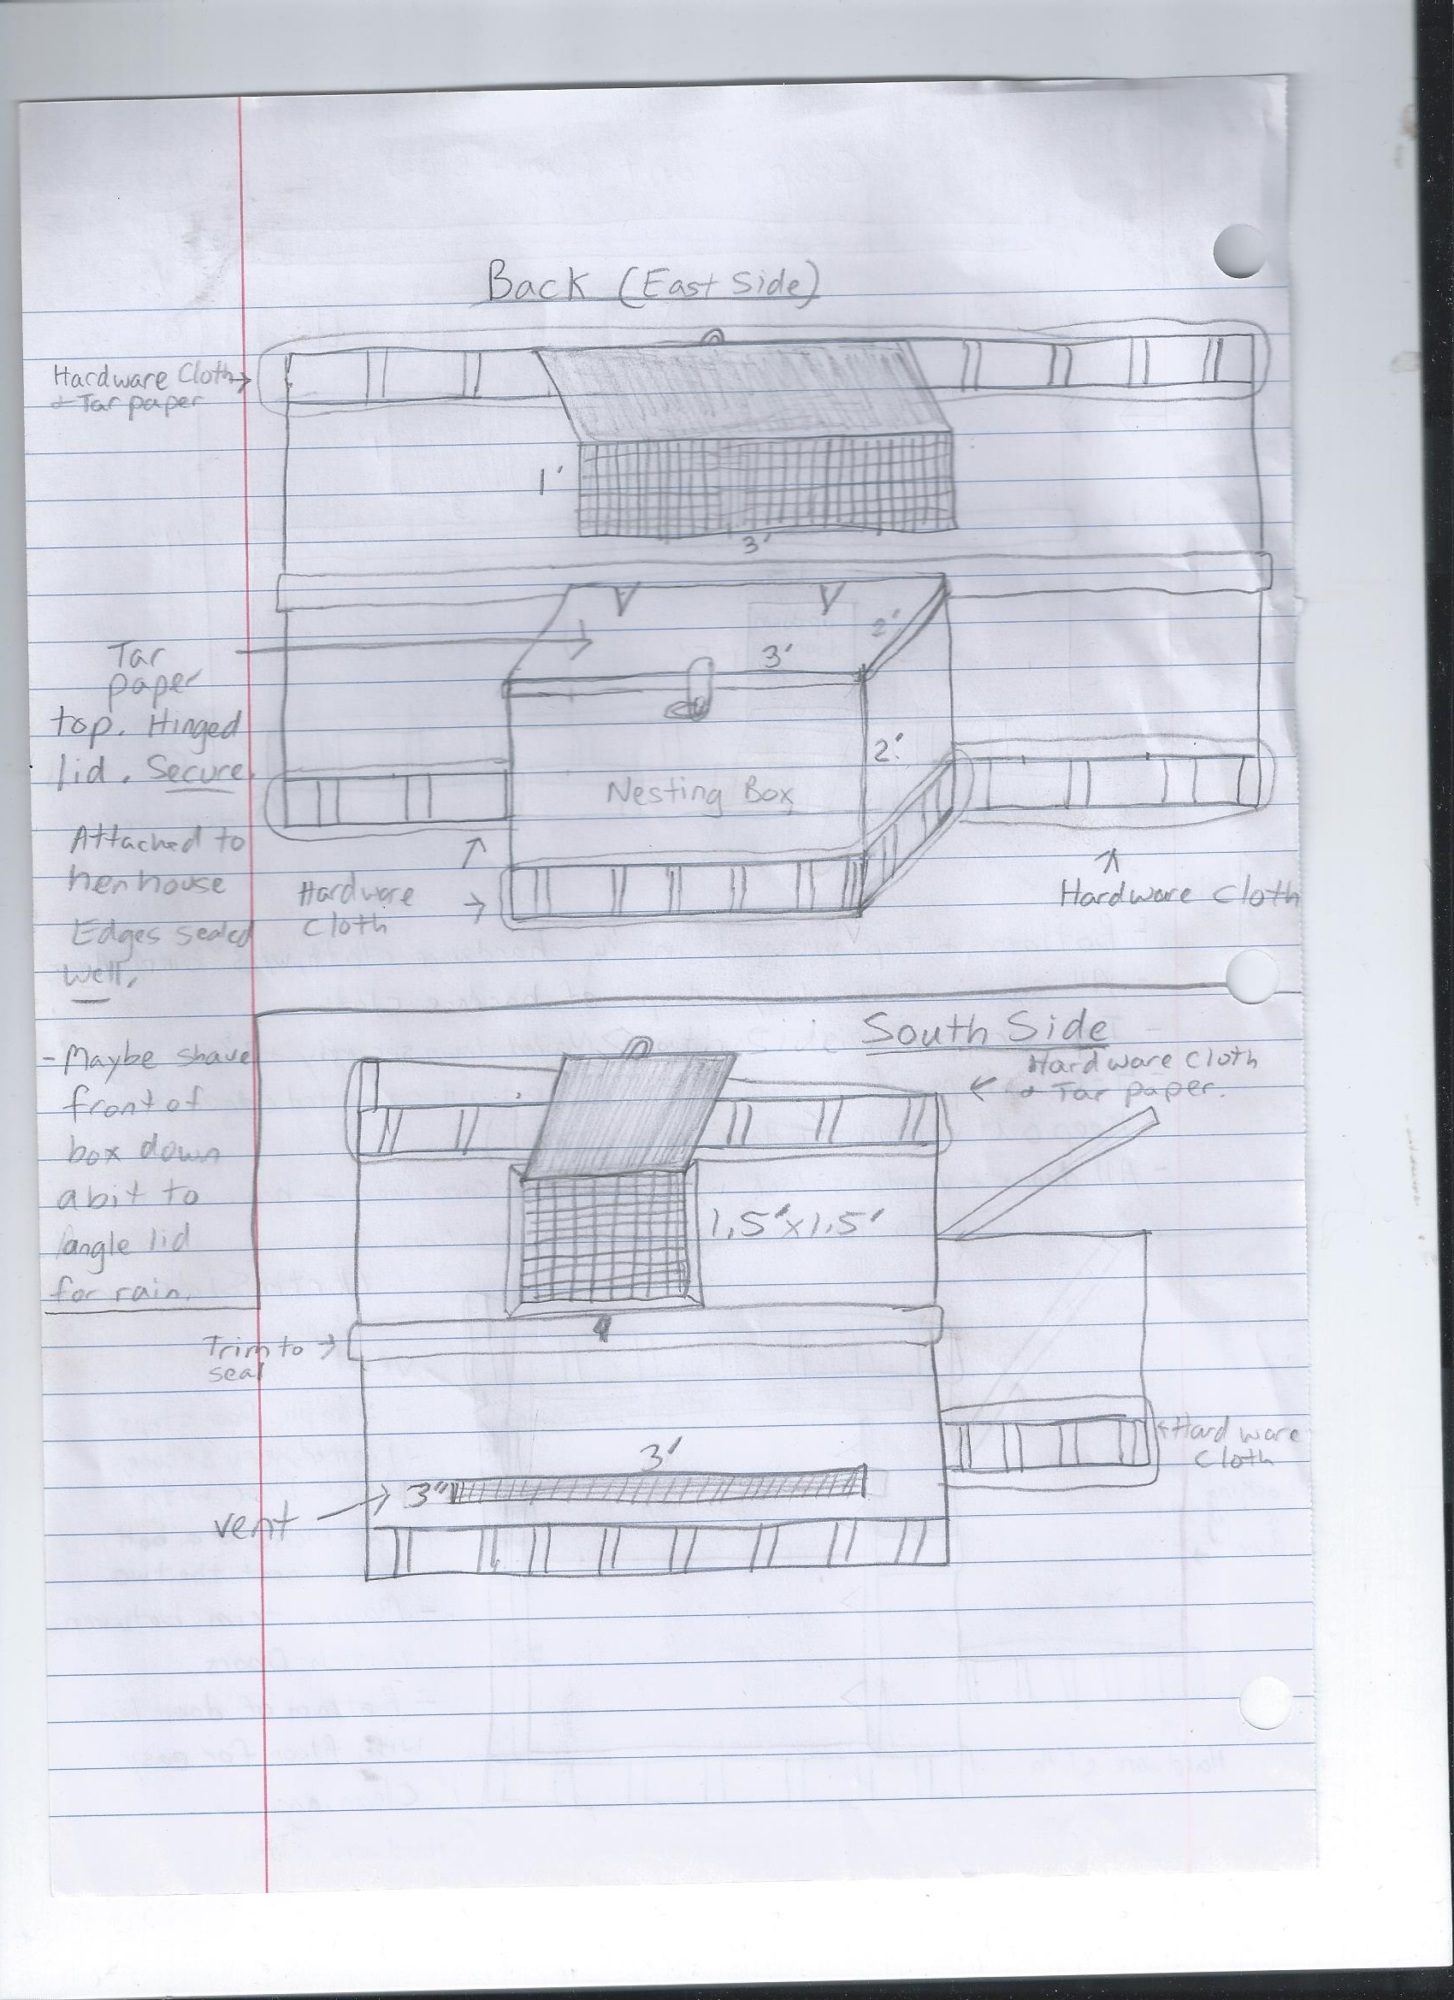 Back (East Side)
Hardware Cloth
+ Tar paper
1'
3'
Tar
paper
top. Hinged
lid. Secure
2'
3'
2'
Nesting Box
Attached to
henhouse
Edges sealed
well.
Hardware
Cloth
Hardware Cloth
- Maybe shave
front of
box down
a bit to
angle lid
for rain.
South Side
Hardware Cloth
+ Tar paper.
1.5' x 1.5'
Trim to
seal
3'
3"
vent
Hardware
Cloth